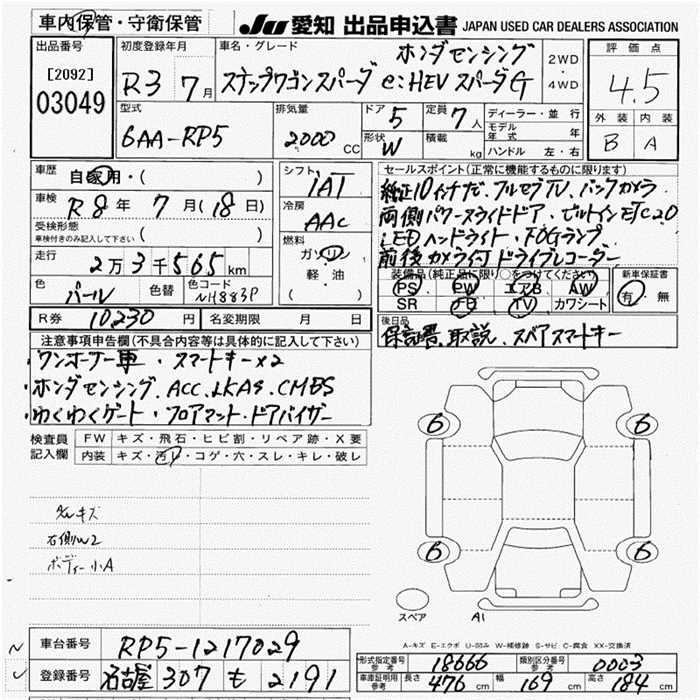 車内保管・守衛保管 JU 愛知 出品申込書 JAPAN USED CAR DEALERS ASSOCIATION
出品番号 [2092] 03049
初度登録年月 R3 7月
車名・グレード ホンダセンシング
ステップワゴンスパーダ e:HEV スパーダG
2WD・4WD
評価点 4.5
外装 内装
B A
型式 6AA-RP5
排気量 2000 CC
ドア 5 定員 7人
形状 W 積載 kg
ディーラー・並行
モデル年式 年
ハンドル 左・右
車歴 自家用・( )
車検 R8年 7月(18日)
受検形態 車検付きのみ記入して下さい ( )
走行 2万3千565km
色 パール 色替 色コード NH883P
シフト IAT
冷房 AAC
燃料 ガソリン 軽・油 ( )
セールスポイント(正常に機能するものに限ります)
純正10インチナビ、フルセグTV、バックカメラ
両側パワースライドドア・ビルトインETC2.0
LEDヘッドライト・FOGランプ
前後カメラ付ドライブレコーダー
装備品(純正品に限り○をつけてください)
PS PW エアB AW
SR TV カワシート
新車保証書 有・無
R券 10230円 名変期限 月 日
後日品 保証書、取説、スペアスマートキー
注意事項申告欄(不具合内容等は具体的に記入して下さい)
・ワンオーナー車・スマートキー×2
・ホンダセンシング、ACC、LKAS、CMBS
・わくわくゲート・フロアマット・ドアバイザー
検査員記入欄
FW キズ・飛石・ヒビ割・リペア跡・X要
内装 キズ・汚レ・コゲ・穴・スレ・キレ・破レ
キズ
右側W2
ボディー小A
6 6
6 6
スペア A1
A-キズ E-エクボ U-凹み W-補修跡 S-サビ C-腐食 XX-交換済
車台番号 RP5-1217029
登録番号 名古屋 307 も 2191
形式指定番号 参考 18666 類別区分番号 参考 0003
車庫証明用 参考 長さ 476cm 幅 169cm 高さ 184cm